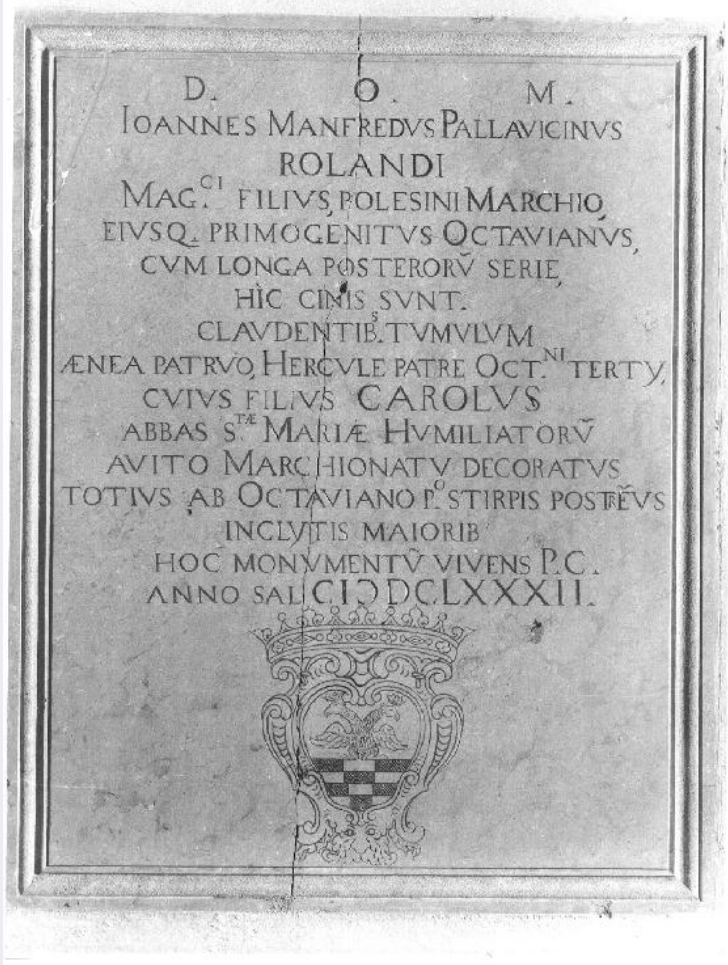 D. O. M.
IOANNES MANFREDVS PALLAVICINVS
ROLANDI
MAG.CI FILIVS, POLESINI MARCHIO,
EIVSQ. PRIMOGENITVS OCTAVIANVS,
CVM LONGA POSTERORṼ SERIE,
HÌC CINIS SVNT.
CLAVDENTIB.S TVMVLVM
ÆNEA PATRVO, HERCVLE PATRE OCT.NI TERTY,
CVIVS FILIVS CAROLVS
ABBAS S.TÆ MARIÆ HVMILIATORṼ
AVITO MARCHIONATV DECORATVS
TOTIVS AB OCTAVIANO P.O STIRPIS POSTRẼVS
INCLVTIS MAIORIB
HOC MONVMENTṼ VIVENS P.C.
ANNO SAL CIↃDCLXXXII.